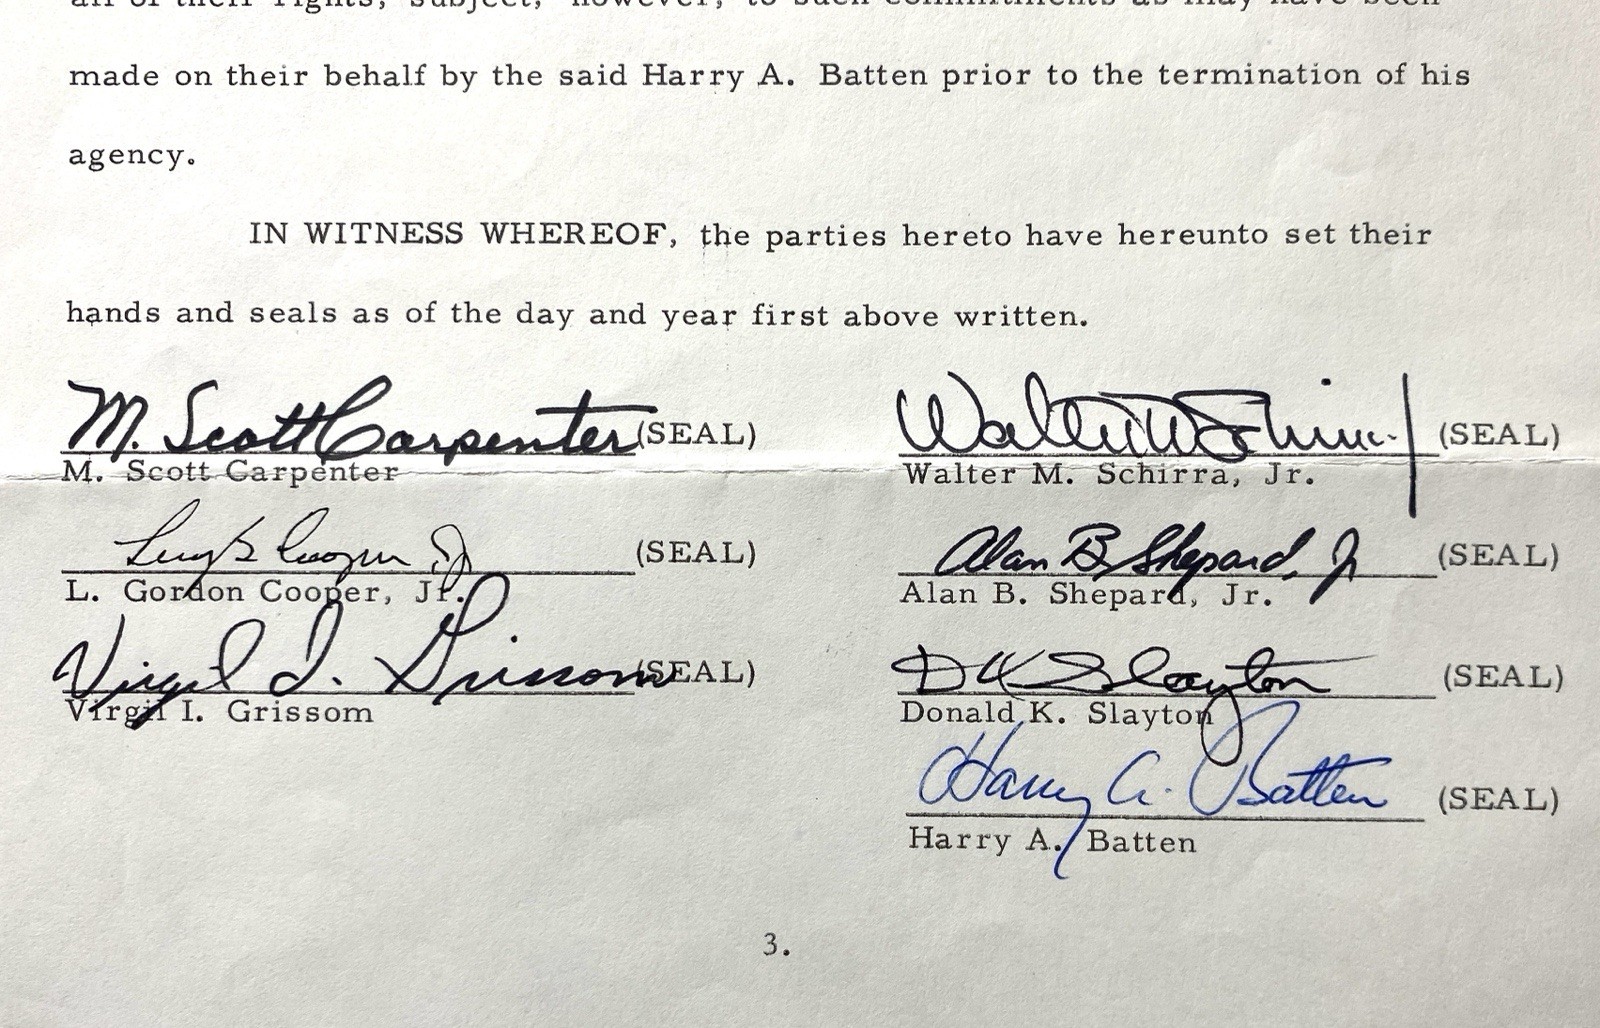 all of their rights, subject, however, to such commitments as may have been
made on their behalf by the said Harry A. Batten prior to the termination of his
agency.
IN WITNESS WHEREOF, the parties hereto have hereunto set their
hands and seals as of the day and year first above written.
M. Scott Carpenter (SEAL)
M. Scott Carpenter
Walter M Schirra Jr (SEAL)
Walter M. Schirra, Jr.
Cooper, Jr (SEAL)
L. Gordon Cooper, Jr.
Alan B. Shepard, Jr (SEAL)
Alan B. Shepard, Jr.
Virgil I. Grissom (SEAL)
Virgil I. Grissom
D K Slayton (SEAL)
Donald K. Slayton
Harry A. Batten (SEAL)
Harry A. Batten
3.